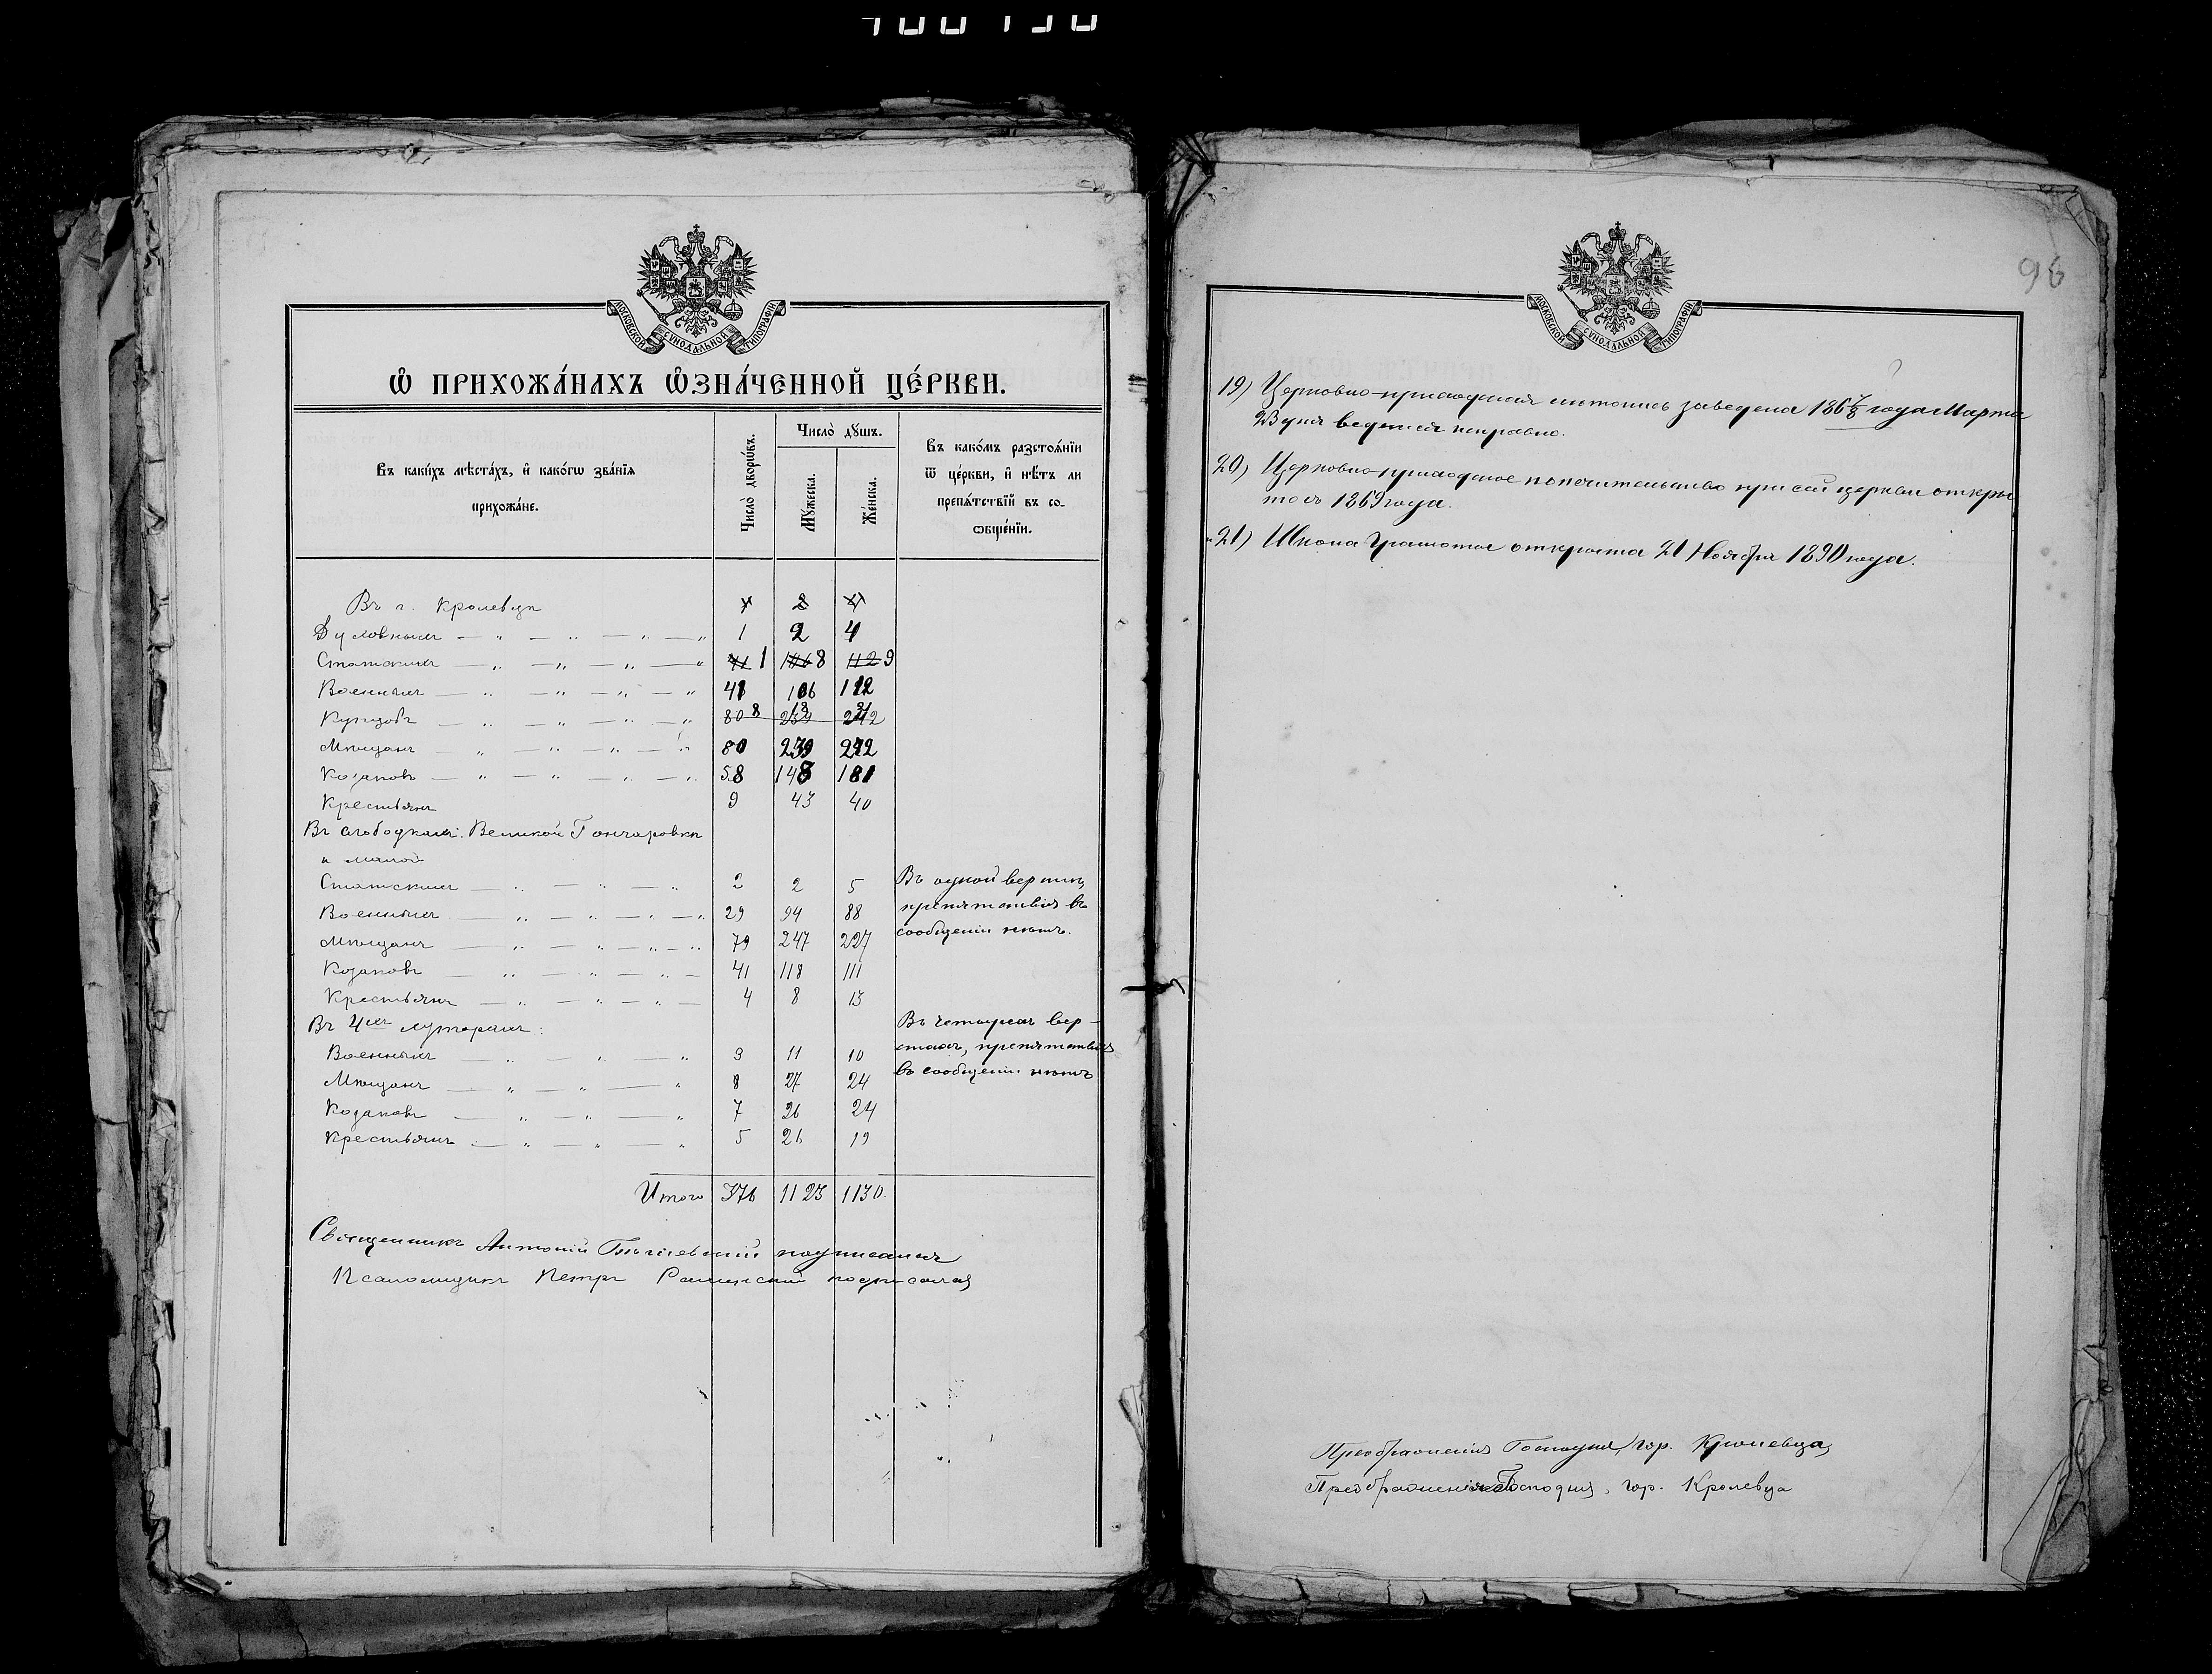 МОСКОВСКОЙ СѴНОДАЛЬНОЙ ТИПОГРАФІИ
Ѽ ПРИХОЖА́НАХЪ Ѽ҆ЗНА́ЧЕННОЙ ЦЕ́РКВИ.
Въ каки́хъ мѣста́хъ, и҆ како́гѡ зва́нїѧ
прихожа́не.
Число̀ дворѡ́въ.
Число̀ дꙋ́шъ.
Мꙋ́жеска.
Же́нска.
Въ како́мъ разстоѧ́нїи
ѿ це́ркви, и҆ нѣ́тъ ли
препѧ́тствїй въ со-
ѡбще́нїи.
Въ г. Кролевцѣ
Духовныхъ — „ — „ — „ — „ 1 2 4
Статскихъ — „ — „ — „ — „ 1 8 9
Военныхъ — „ — „ — „ — „ 41 106 112
Купцовъ — „ — „ — „ — „ 8 13 21
Мѣщанъ — „ — „ — „ — „ 80 239 242
Козаковъ — „ — „ — „ — „ 58 148 181
Крестьянъ 9 43 40
Въ слободкахъ: Великой Гончаровкѣ
и малой
Статскихъ — „ — „ — „ 2 2 5 Въ одной верстѣ,
Военныхъ — „ — „ — „ — „ 29 94 88 препятствія въ
Мѣщанъ — „ — „ — „ — „ 79 247 227 сообщеніи нѣтъ.
Козаковъ — „ — „ — „ — 41 118 111
Крестьянъ — „ — „ — „ — 4 8 13
Въ 4хъ хуторахъ: Въ четырехъ вер-
Военныхъ — „ — „ — „ 3 11 10 стахъ, препятствія
Мѣщанъ — „ — „ — „ 8 27 24 въ сообщеніи нѣтъ
Козаковъ — „ — „ — „ 7 26 24
Крестьянъ — „ — „ — „ 5 26 19
Итого 376 1123 1130.
Священникъ Антоній подписался
Псаломщикъ Петръ подписался
96
МОСКОВСКОЙ СѴНОДАЛЬНОЙ ТИПОГРАФІИ
19) Церковно-приходская лѣтопись заведена 186 7/8 года Марта
23 дня ведется исправно.
20) Церковно-приходское попечительство при сей церкви откры
то съ 1869 года.
21) Школа Грамоты открыта 21 Ноября 1890 года.
Преображенія Господня, гор. Кролевца,
Преображенія Господня, гор. Кролевца